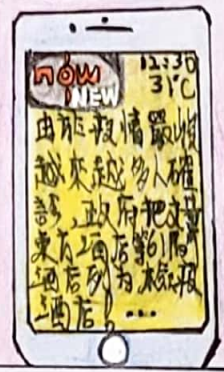 now
NEW
12:30
31°C
由於疫情
越來越多人確
診,政府把文
東方酒店等61間
酒店列為
酒店! ...